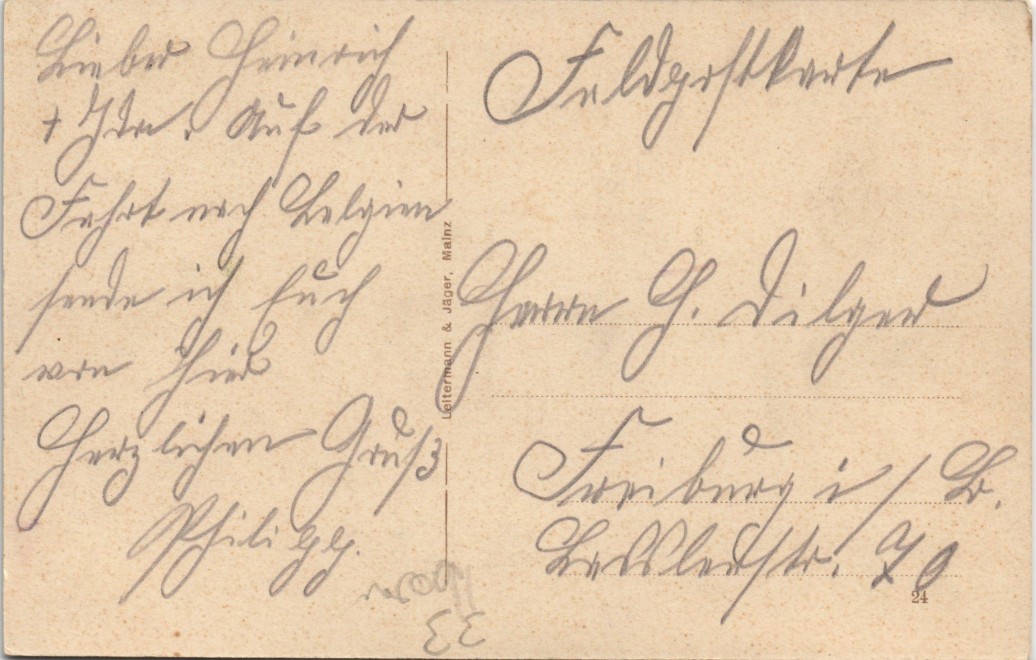 Lieber Heinrich
+ Ida. Auf der
Fahrt nach Belgien
sende ich Euch
von hier
Herzlichen Gruß
Philipp.
Leitermann & Jäger, Mainz
Feldpostkarte
Herrn H. Dilger
Freiburg i/B.
str. 70
24
33